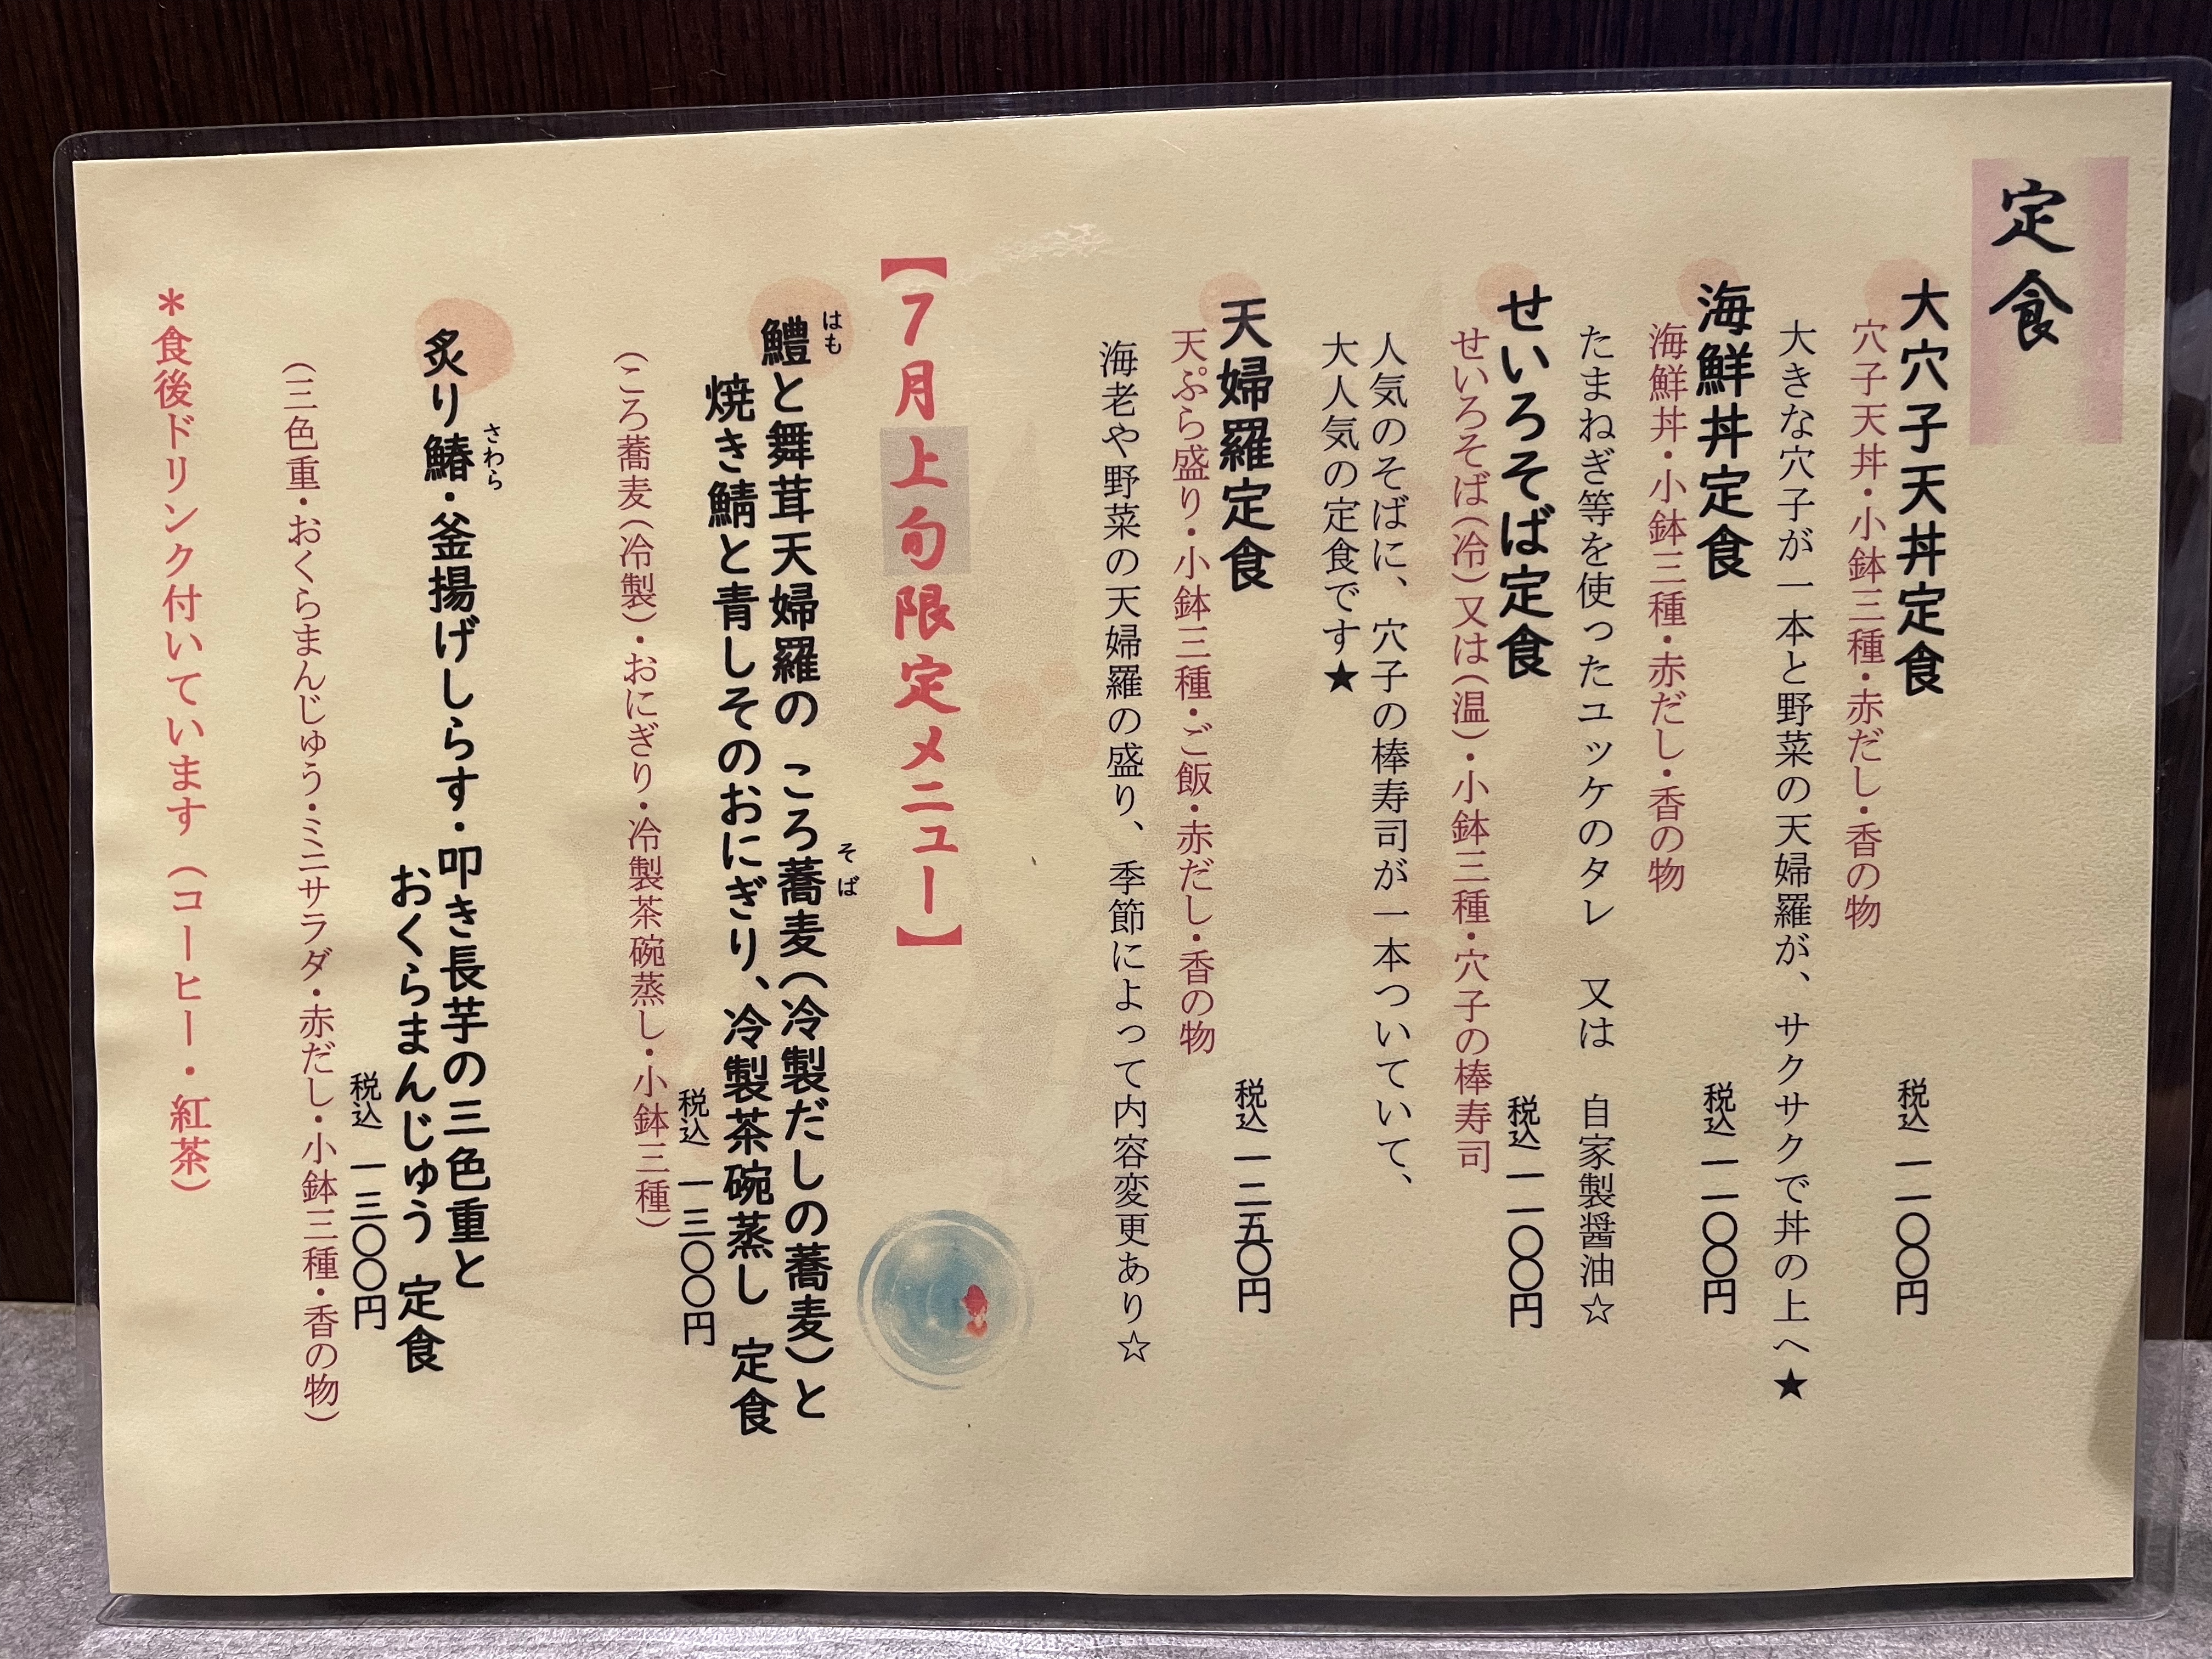 定食
大穴子天丼定食　税込 一一〇〇円
穴子天丼・小鉢三種・赤だし・香の物
大きな穴子が一本と野菜の天婦羅が、サクサクで丼の上へ★
海鮮丼定食　税込 一一〇〇円
海鮮丼・小鉢三種・赤だし・香の物
たまねぎ等を使ったユッケのタレ　又は　自家製醤油☆
せいろそば定食　税込 一一〇〇円
せいろそば(冷)又は(温)・小鉢三種・穴子の棒寿司
人気のそばに、穴子の棒寿司が一本ついていて、
大人気の定食です★
天婦羅定食　税込 一二五〇円
天ぷら盛り・小鉢三種・ご飯・赤だし・香の物
海老や野菜の天婦羅の盛り、季節によって内容変更あり☆
【7月上旬限定メニュー】
はも　そば
鱧と舞茸天婦羅の ころ蕎麦(冷製だしの蕎麦)と
焼き鯖と青しそのおにぎり、冷製茶碗蒸し 定食
税込 一三〇〇円
(ころ蕎麦(冷製)・おにぎり・冷製茶碗蒸し・小鉢三種)
さわら
炙り鰆・釜揚げしらす・叩き長芋の三色重と
おくらまんじゅう 定食
税込 一三〇〇円
(三色重・おくらまんじゅう・ミニサラダ・赤だし・小鉢三種・香の物)
＊食後ドリンク付いています(コーヒー・紅茶)